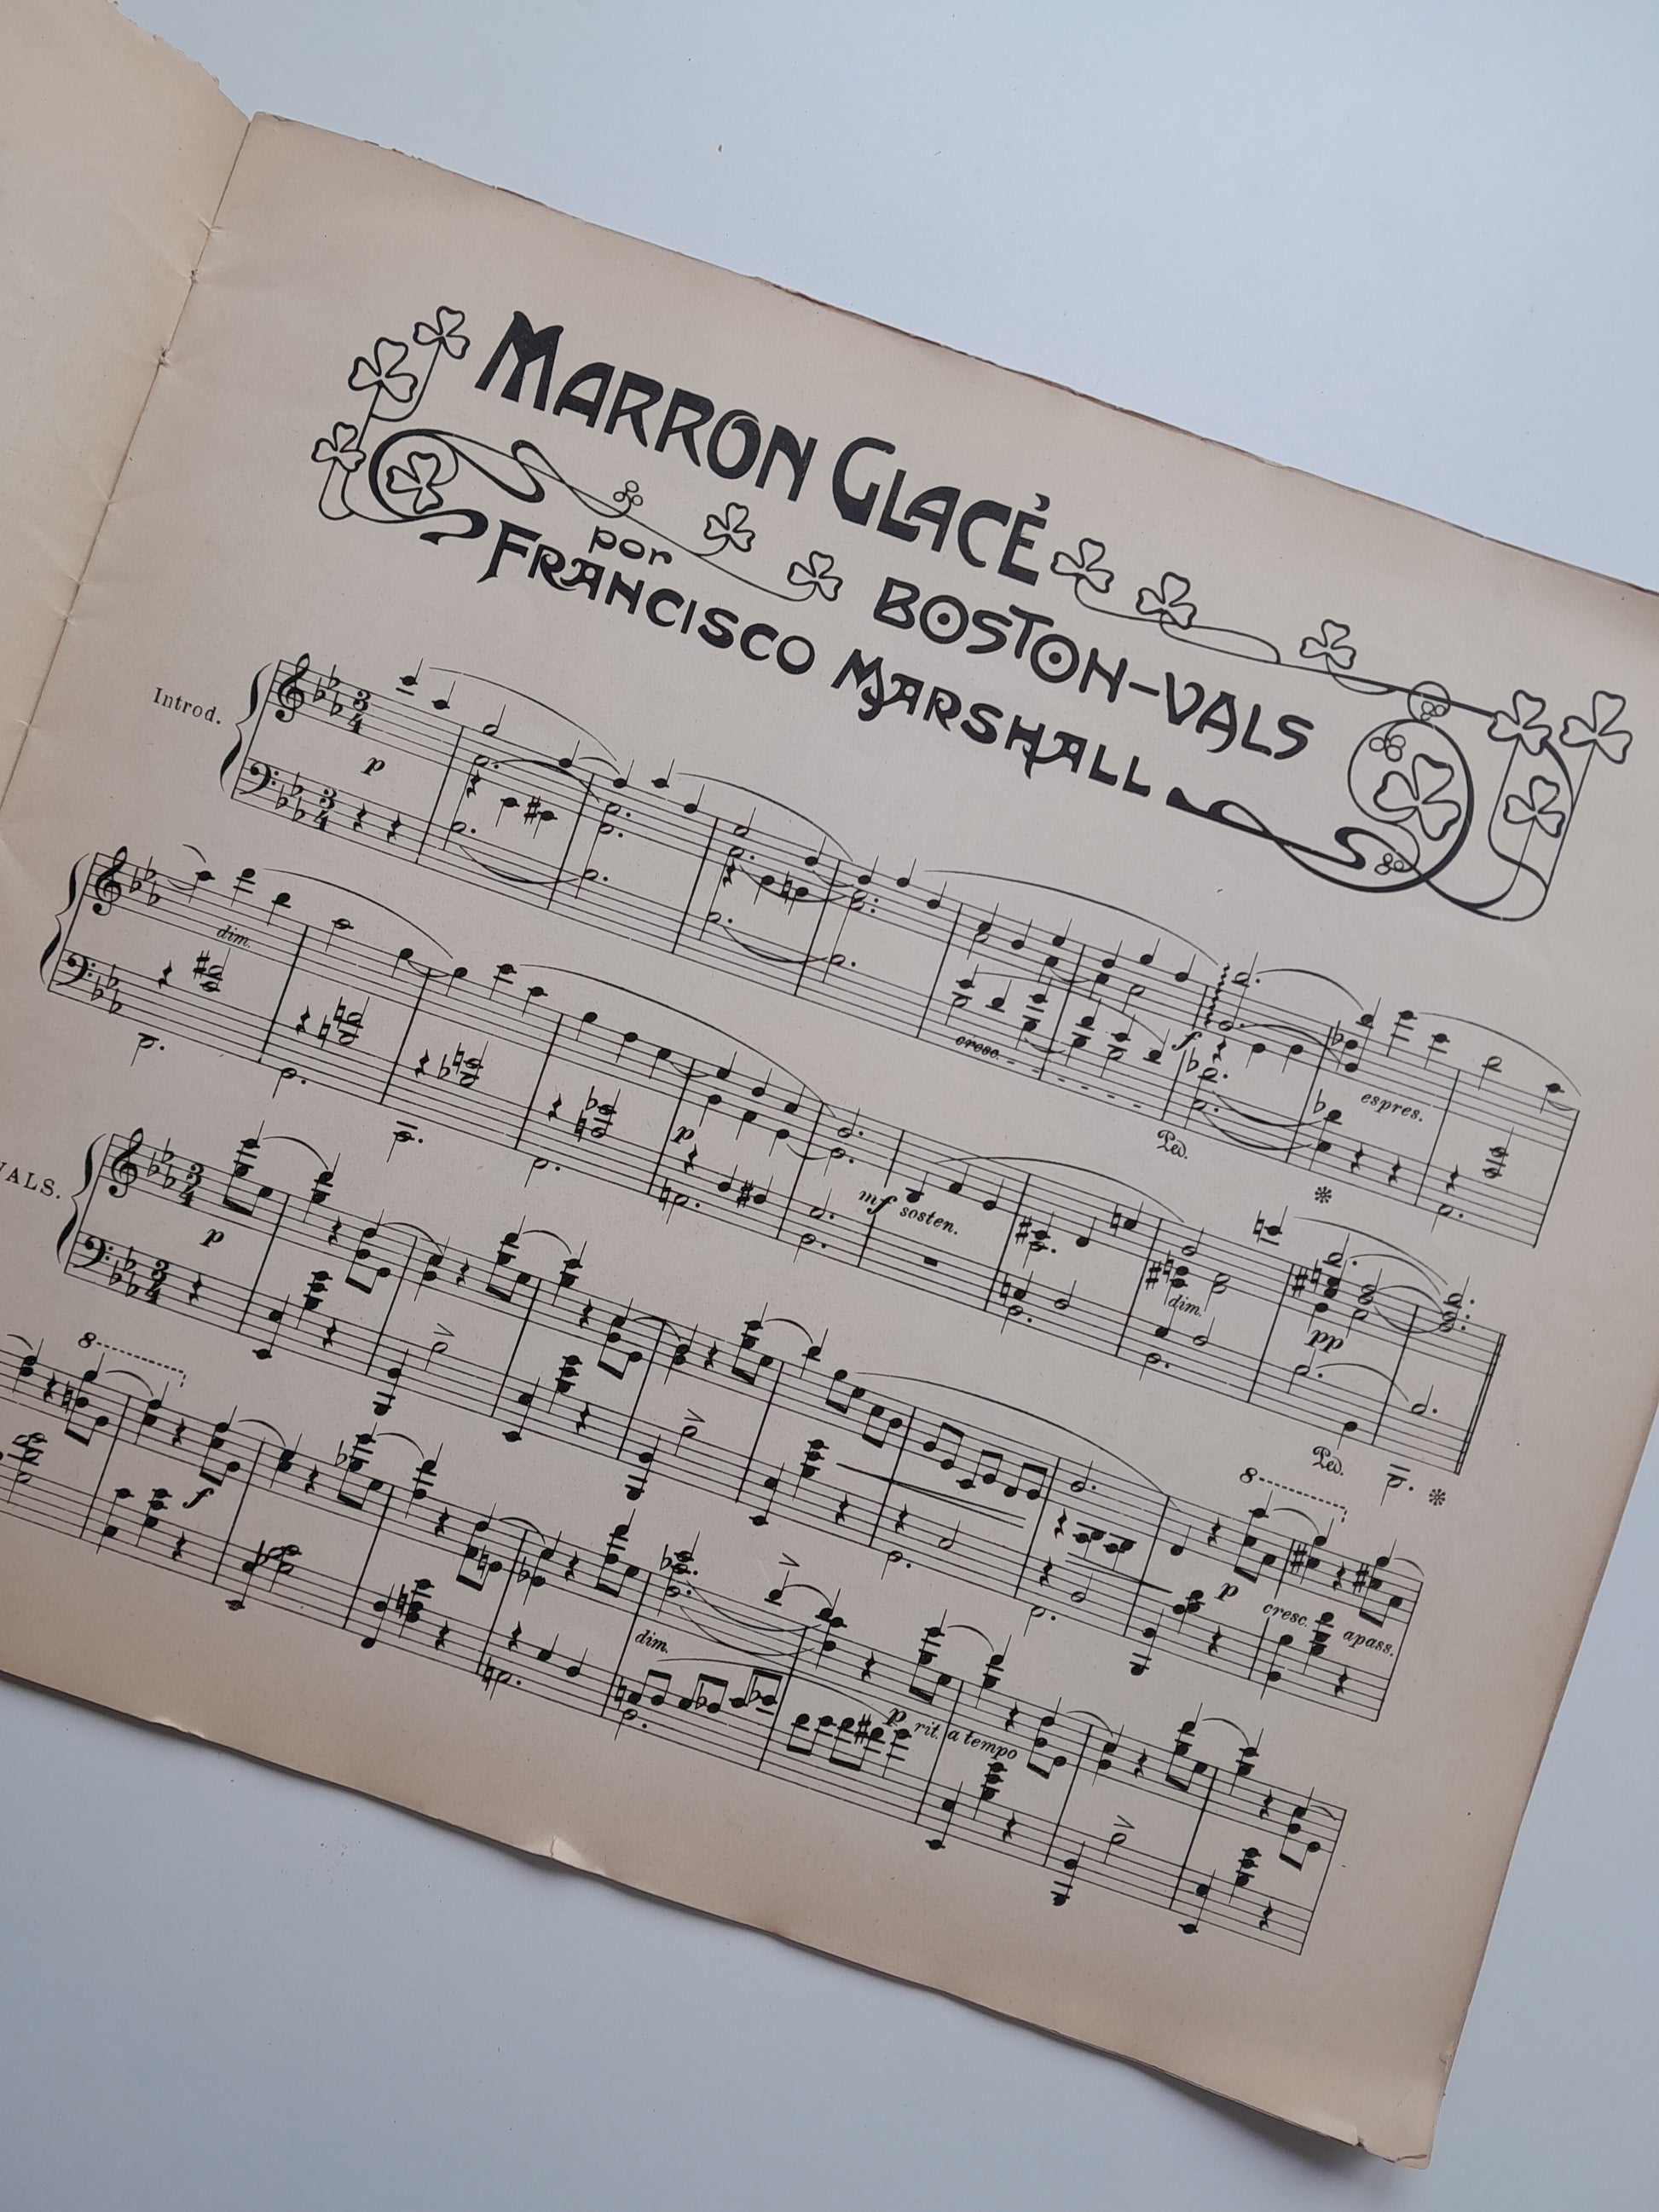 MARRON GLACÉ
BOSTON-VALS
por
FRANCISCO MARSHALL
Introd.
3 4
p
3 4
cresc.
f
Ped.
espres.
dim.
p
mf sosten.
dim.
pp
Ped.
VALS.
3 4
p
3 4
8
p
cresc.
apass.
8
f
dim.
p rit. a tempo